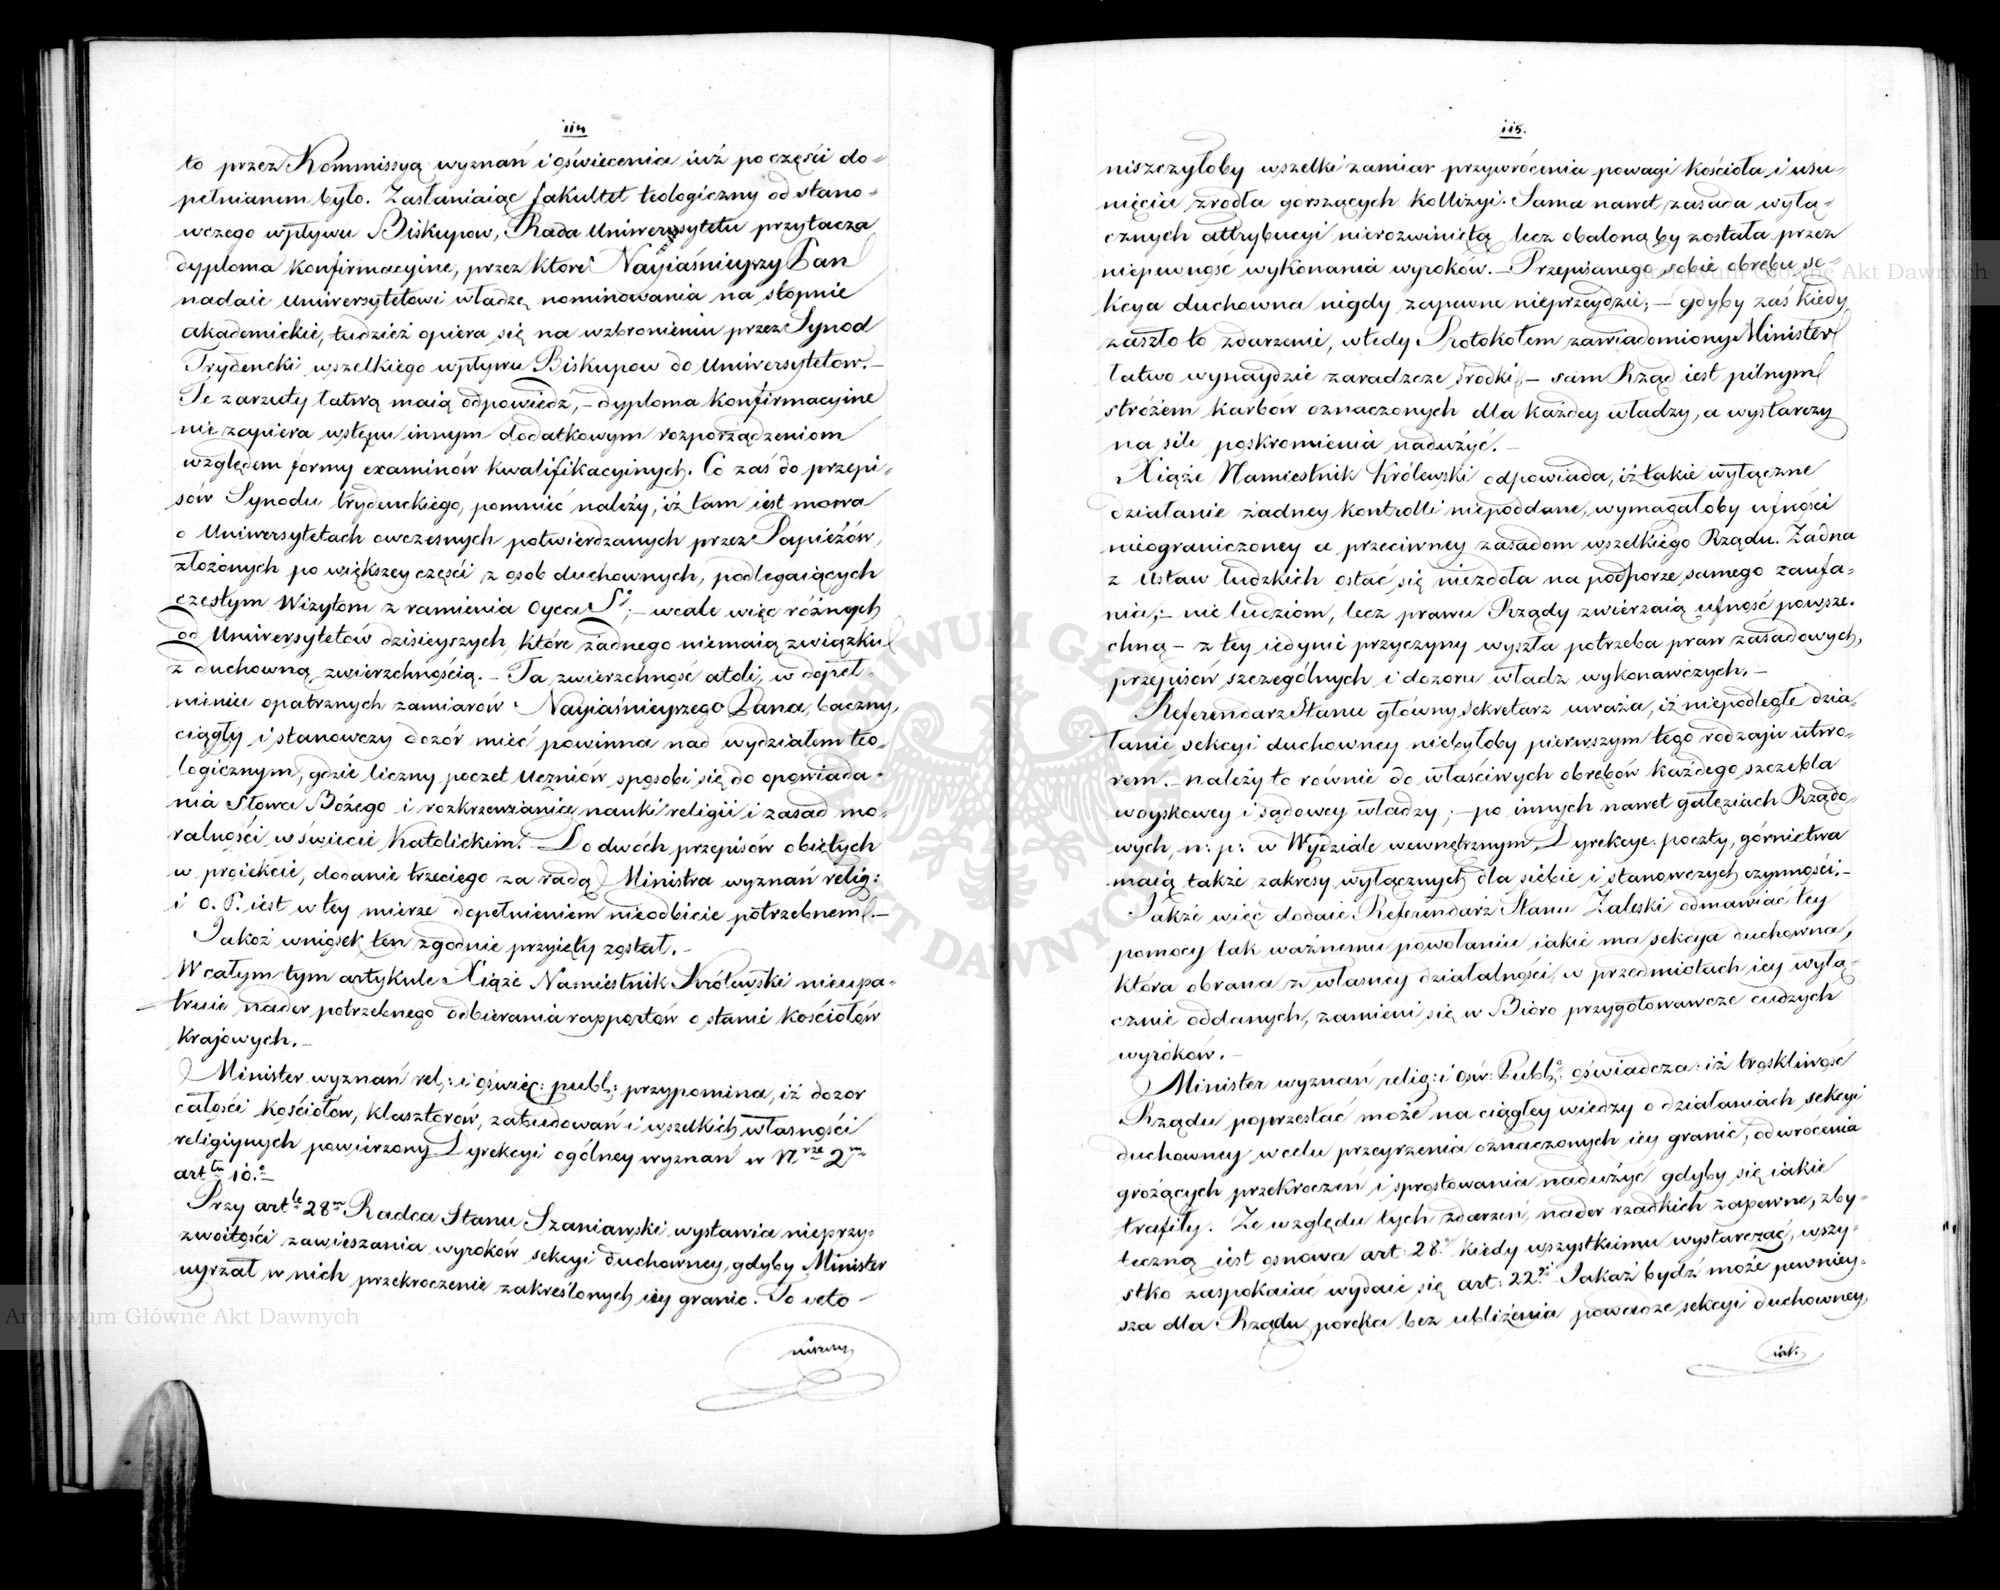 114
to przez Kommissyą wyznań i oświecenia iuż po części do-
pełnianem było. Zasłaniaiąc fakultet teologiczny od stano-
wczego wpływu Biskupow, Rada Uniwersytetu przytacza
dyploma konfirmacyine, przez które Nayiaśnieyszy Pan
nadaie Uniwersytetowi władzę nominowania na stopnie
akademickie, tudzież opiera się na wzbronieniu przez Synod
Trydencki wszelkiego wpływu Biskupow do Uniwersytetow.-
Te zarzuty łatwą maią odpowiedź,- dyploma konfirmacyine
nie zapiera wstępu innym dodatkowym rozporządzeniom
względem formy examinów kwalifikacyinych. Co zaś do przepi-
sów Synodu trydenckiego, pomnieć należy, iż tam iest mowa
o Uniwersytetach owczesnych potwierdzanych przez Papieżów,
złożonych po większey części z osob duchownych, podlegaiących
częstym Wizytom z ramienia Oyca Sº,- wcale więc różnych
od Uniwersytetów dzisieyszych, które żadnego niemaią związku
z duchowną zwierzchnością.- Ta zwierzchność atoli, w dopeł-
nieniu opatrznych zamiarów Nayiaśnieyszego Pana, baczny,
ciągły i stanowczy dozór mieć powinna nad wydziałem teo-
logicznym, gdzie liczny poczet Uczniów sposobi się do opowiada-
nia Słowa Bożego i rozkrzewiania nauki religii i zasad mo-
ralności w świecie Katolickim. Do dwóch przepisów obiętych
w proiekcie, dodanie trzeciego za radą Ministra wyznań relig:
i O. P. iest w tey mierze dopełnieniem nieodbicie potrzebnem.-
Jakoż wniosek ten zgodnie przyięty został.-
W całym tym artykule Xiąże Namiestnik Królewski nieupa-
truie nader potrzebnego odbierania rapportów o stanie kościołów
krajowych.-
Minister wyznań rel: i oświec: publ: przypomina, iż dozor
całości kościołów, klasztorów, zabudowań i wszelkich własności
religiynych powierzony Dyrekcyi ogólney wyznań w Nrze 2m
arttu 10.º-
Przy artle 28m Radca Stanu Szaniawski wystawia nieprzy-
zwoitości zawieszania wyroków sekcyi duchowney, gdyby Minister
uyrzał w nich przekroczenie zakreślonych iey granic. To veto-
niszczy
115.
niszczyłoby wszelki zamiar przywrócenia powagi kościoła i usu-
nięcia źrodła gorszących kollizyi. Sama nawet zasada wyłą-
cznych attrybucyi nierozwiniętą lecz obaloną by została przez
niepewność wykonania wyroków.- Przepisanego sobie obrębu se-
kcya duchowna nigdy zapewne nieprzeydzie;- gdyby zaś kiedy
zaszło to zdarzenie, wtedy Protokołem zawiadomiony Minister
łatwo wynaydzie zaradzcze środki,- sam Rząd iest pilnym
stróżem karbów oznaczonych dla każdey władzy, a wystarczy
na sile poskromienia nadużyć.-
Xiąże Namiestnik Królewski odpowiada, iż takie wyłączne
działanie żadney kontrolli niepoddane, wymagałoby ufności
nieograniczoney a przeciwney zasadom wszelkiego Rządu. Żadna
z Ustaw ludzkich ostać się niezdoła na podporze samego zaufa-
nia,- nie ludziom, lecz prawu Rządy zwierzaią ufność powsze-
chną - z tey iedynie przyczyny wyszła potrzeba praw zasadowych,
przepisów szczególnych i dozoru władz wykonawczych.-
Referendarz Stanu główny sekretarz uważa, iż niepodległe dzia-
łanie sekcyi duchowney niebyłoby pierwszym tego rodzaju utwo-
rem.- należy to równie do właściwych obrębów każdego szczebla
woyskowey i sądowey władzy;- po innych nawet gałęziach Rządo-
wych, n: p: w Wydziale wewnętrznym, Dyrekcye: poczty, górnictwa
maią także zakresy wyłącznych dla siebie i stanowczych czynności.-
Jakże więc dodaie Referendarz Stanu Zaleski odmawiać tey
pomocy tak ważnemu powołaniu iakie ma sekcya duchowna,
która obrana z własney działalności w przedmiotach iey wyłą-
cznie oddanych, zamieni się w Bióro przygotowawcze cudzych
wyroków.-
Minister wyznań relig: i ośw: Publ: oświadcza: iż troskliwość
Rządu poprzestać może na ciągłey wiedzy o działaniach sekcyi
duchowney w celu przeyrzenia oznaczonych iey granic, odwrócenia
grożących przekroczeń i sprostowania nadużyć gdyby się iakie
trafiły. Ze względu tych zdarzeń, nader rzadkich zapewne, zby-
teczną iest osnowa art: 28.º kiedy wszystkiemu wystarczać, wszy-
stko zaspokaiać wydaie się art: 22gi Jakaż bydź może pewniey-
sza dla Rządu poręka bez ubliżenia powadze sekcyi duchowney,
iak
Archiwum Główne Akt Dawnych
Archiwum Główne Akt Dawnych
ARCHIWUM GŁÓWNE AKT DAWNYCH